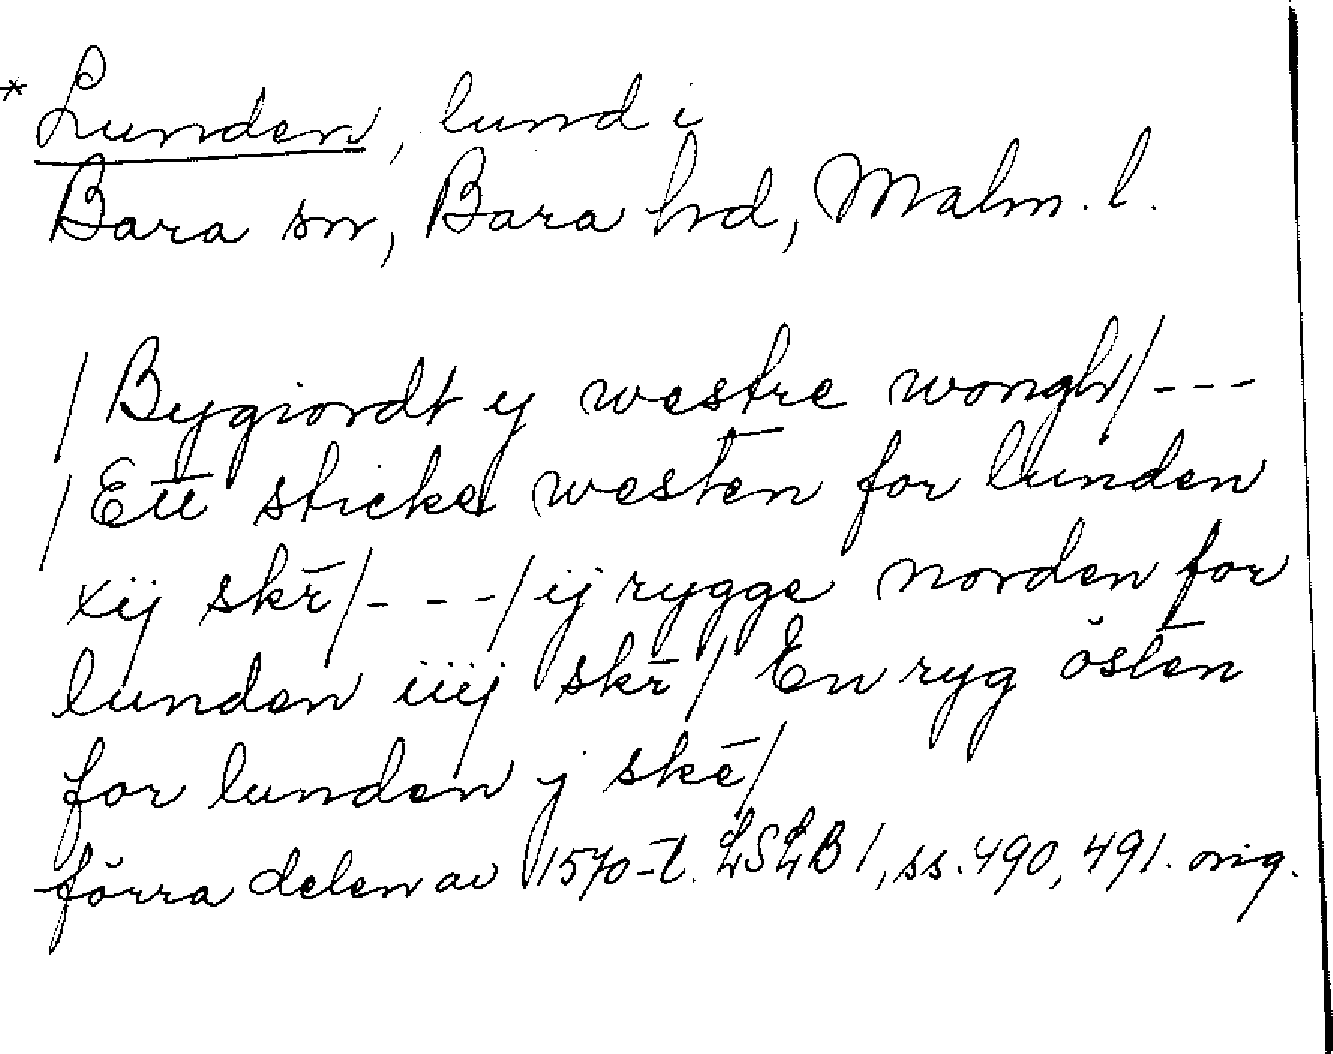 * Lunden, lund i
Bara sn, Bara hd, Malm. l.
/ Bygiordt y westre wongh / ---
/ Ett sticke westen̄ for lunden
xij skr̄ / --- / ij rygge norden for
lunden iiij skr̄ / En ryg östen̄
for lunden j skē /
förra delen av 1570-t. LSLB 1, ss. 490, 491. orig.